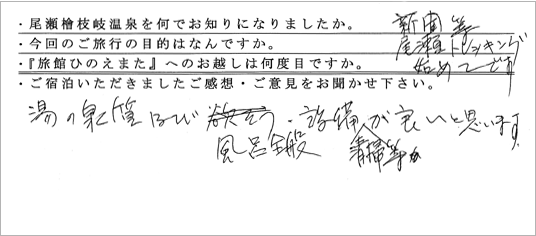 ・尾瀬檜枝岐温泉を何でお知りになりましたか。 新聞等
・今回のご旅行の目的はなんですか。 尾瀬トレッキング
・『旅館ひのえまた』へのお越しは何度目ですか。 始めてです
・ご宿泊いただきましたご感想・ご意見をお聞かせ下さい。
湯の泉質及び ・設備が良いと思います
風呂全般 清掃等が